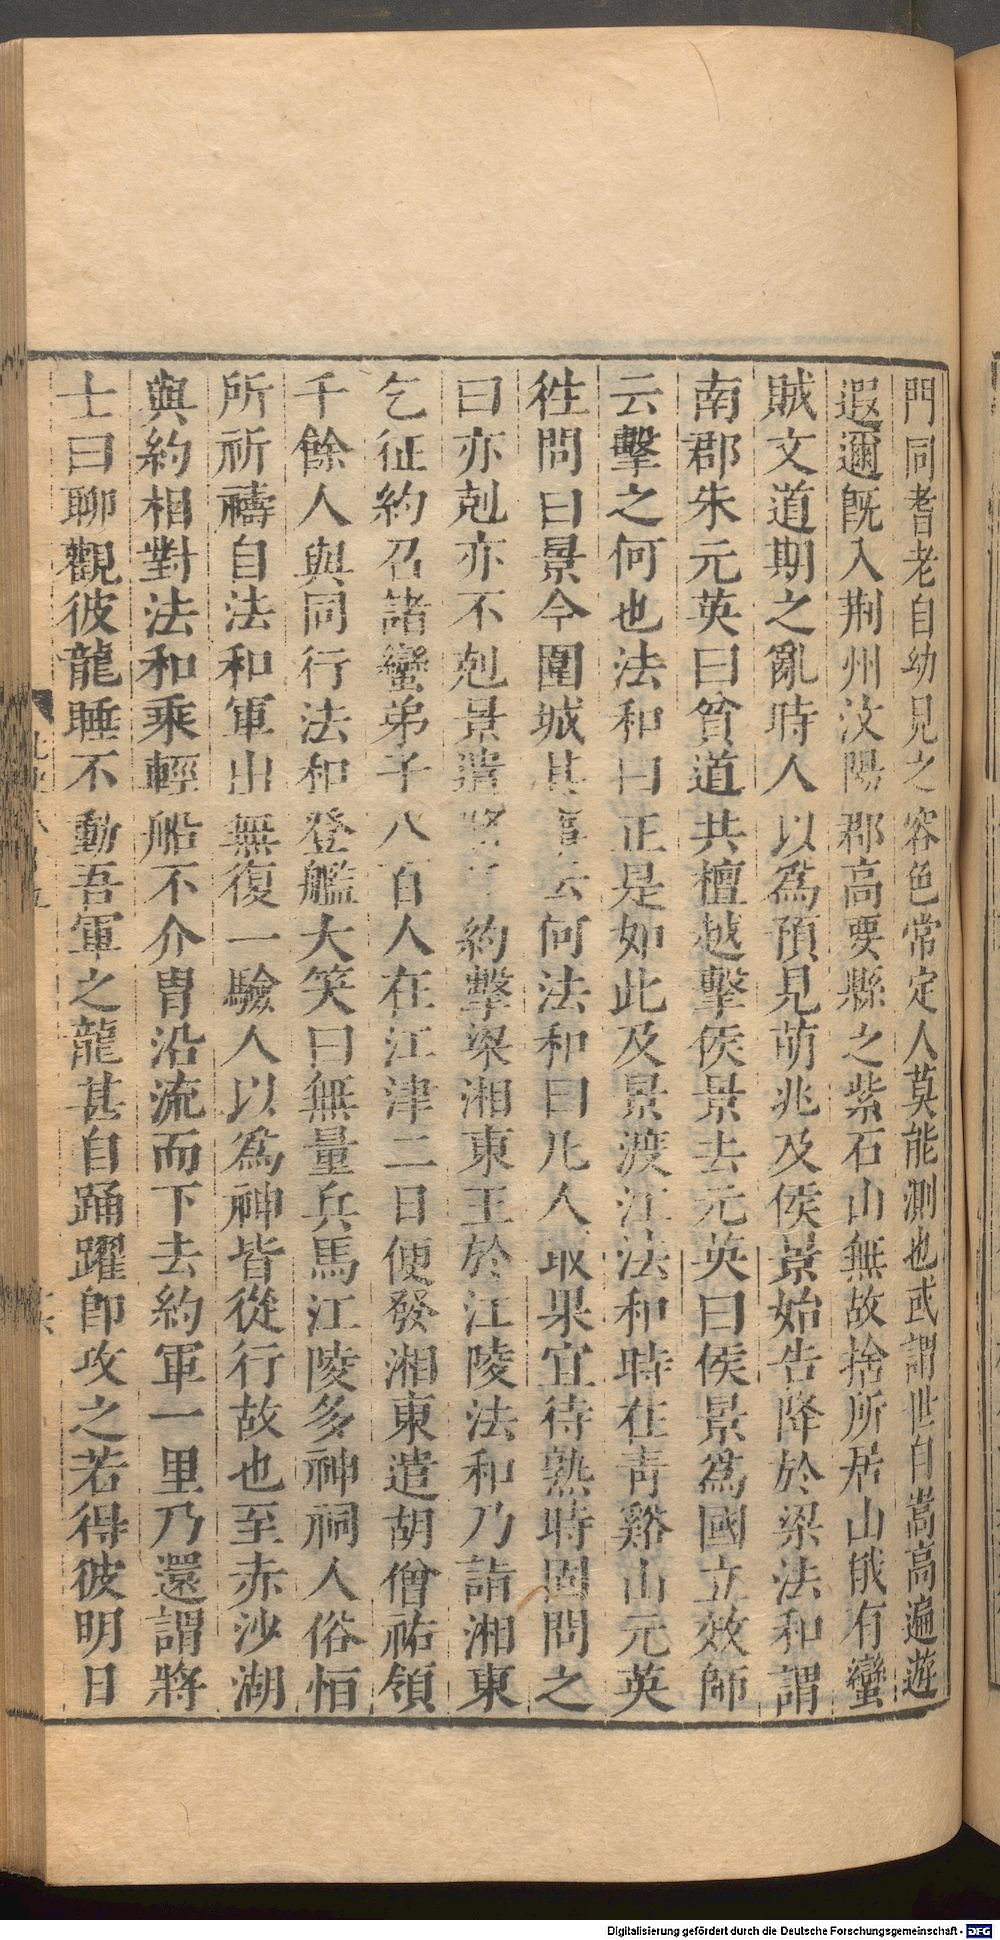 門同耆老自幼見之容色常定人莫能測也或謂世自嵩高遍遊
遐邇既入荆州汶陽郡高要縣之紫石山無故捨所居山俄有蠻
賊文道期之亂時人以為預見萌兆及侯景始告降於梁法和謂
南郡朱元英曰貧道共檀越擊侯景去元英曰侯景為國立效師
云擊之何也法和曰正是如此及景渡江法和時在青谿山元英
徃問曰景今圍城其事云何法和曰凡人取果宜待熟時固問之
曰亦剋亦不剋景遣將任約擊梁湘東王於江陵法和乃詣湘東
乞征約召諸蠻弟子八百人在江津二日便發湘東遣胡僧祐領
千餘人與同行法和登艦大笑曰無量兵馬江陵多神祠人俗恒
所祈禱自法和軍出無復一驗人以為神皆從行故也至赤沙湖
與約相對法和乘輕船不介冑沿流而下去約軍一里乃還謂將
士曰聊觀彼龍睡不動吾軍之龍甚自踊躍卽攻之若得彼明日
Digitalisierung gefördert durch die Deutsche Forschungsgemeinschaft - DFG